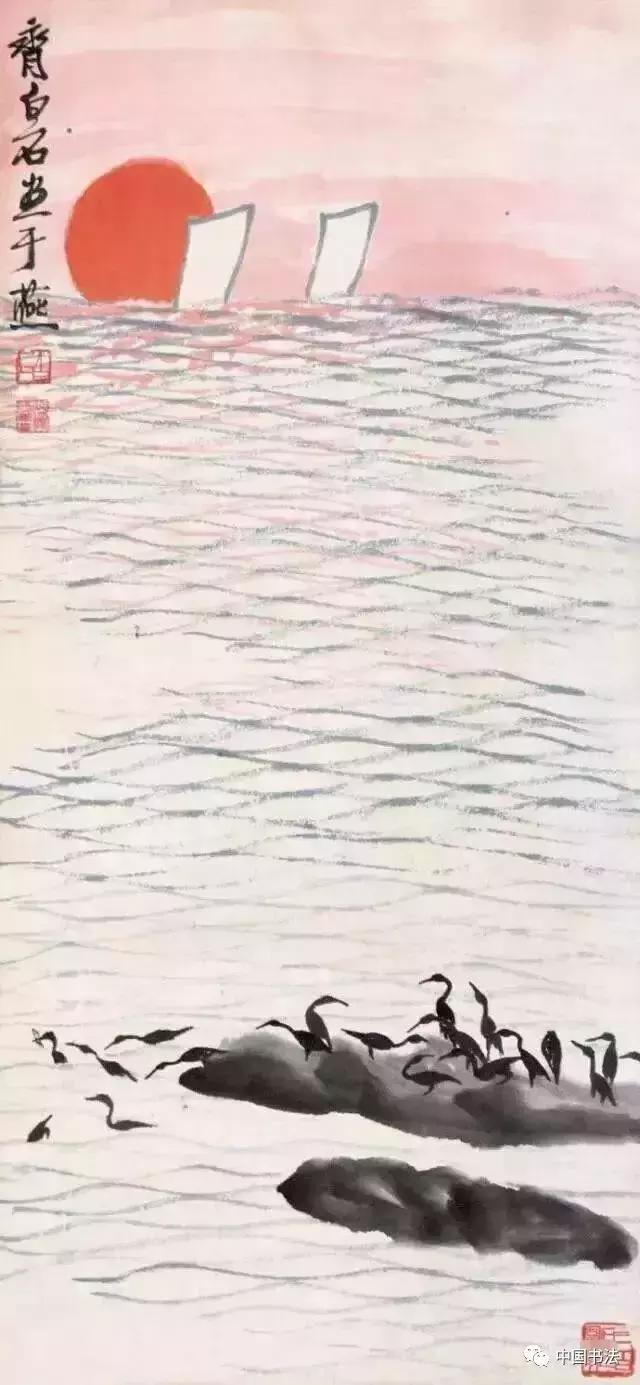 齊白石畫于燕
中国书法